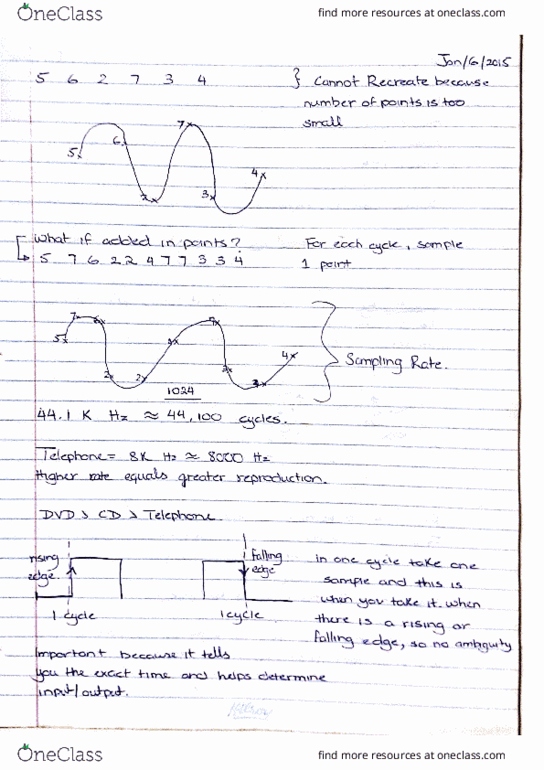 OneClass
find more resources at oneclass.com
Jan/6/2015
5 6 2 7 3 4
} Cannot Recreate because
number of points is too
small
5x 6x 2x 7x 3x 4x
What if added in points?
5 7 6 2 2 4 7 7 3 3 4
For each cycle, sample
1 point
5x 7x 6x 2x 2x 4x
Sampling Rate.
1024
44.1 K Hz ≈ 44,100 cycles.
Telephone = 8K Hz ≈ 8000 Hz
Higher rate equals greater reproduction.
DVD > CD > Telephone
rising
edge
1 cycle
falling
edge
1 cycle
in one cycle take one
sample and this is
when you take it. when
there is a rising or
falling edge, so no ambiguity
Important because it tells
you the exact time and helps determine
input/output.
OneClass
find more resources at oneclass.com